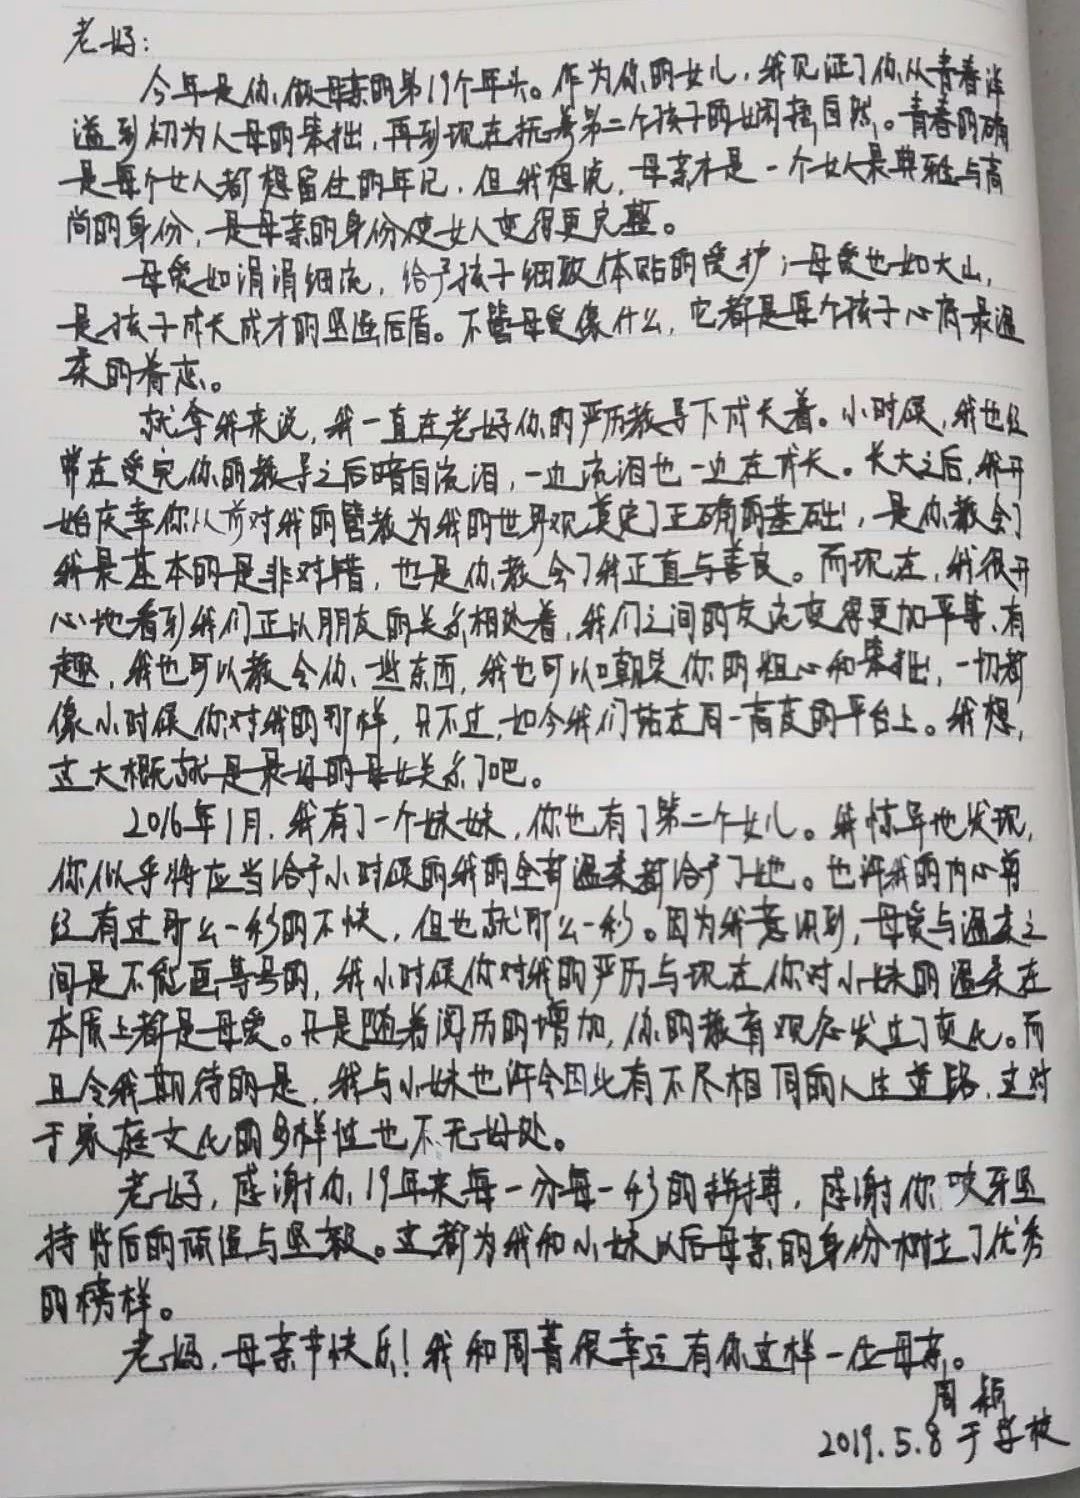 老妈：
今年是你做母亲的第19个年头。作为你的女儿，我见证了你从青春洋
溢到初为人母的笨拙，再到现在抚养第二个孩子的娴熟自然。青春的确
是每个女人都想留住的年纪，但我想说，母亲才是一个女人最典雅与高
尚的身份，是母亲的身份使女人变得更完整。
母爱如涓涓细流，给予孩子细致体贴的爱护；母爱也如大山，
是孩子成长成才的坚强后盾。不管母爱像什么，它都是每个孩子心底最温
柔的眷恋。
就拿我来说，我一直在老妈你的严厉教导下成长着。小时候，我也经
常在受完你的教导之后暗自流泪，一边流泪也一边在成长。长大之后，我开
始庆幸你从前对我的管教为我的世界观奠定了正确的基础，是你教会了
我最基本的是非对错，也是你教会了我正直与善良。而现在，我很开
心地看到我们正以朋友的关系相处着，我们之间的交流变得更加平等、有
趣，我也可以教会你一些东西，我也可以嘲笑你的粗心和笨拙，一切都
像小时候你对我的那样，只不过，如今我们站在同一高度的平台上。我想，
这大概就是最好的母女关系了吧。
2016年1月，我有了一个妹妹，你也有了第二个女儿。我惊异地发现，
你似乎将应当给予小时候的我的全部温柔都给予了她。也许我的内心曾
经有过那么一秒的不快，但也就那么一秒。因为我意识到，母爱与温柔之
间是不能画等号的，我小时候你对我的严厉与现在你对小妹的温柔在
本质上都是母爱。只是随着阅历的增加，你的教育观念发生了变化。而
且令我期待的是，我与小妹也许会因此有不尽相同的人生道路，这对
于家庭文化的多样性也不无好处。
老妈，感谢你19年来每一分每一秒的拼搏，感谢你咬牙坚
持背后的顽强与坚毅。这都为我和小妹以后母亲的身份树立了优秀
的榜样。
老妈，母亲节快乐！我和周菁很幸运有你这样一位母亲。
周颖
2019.5.8于学校